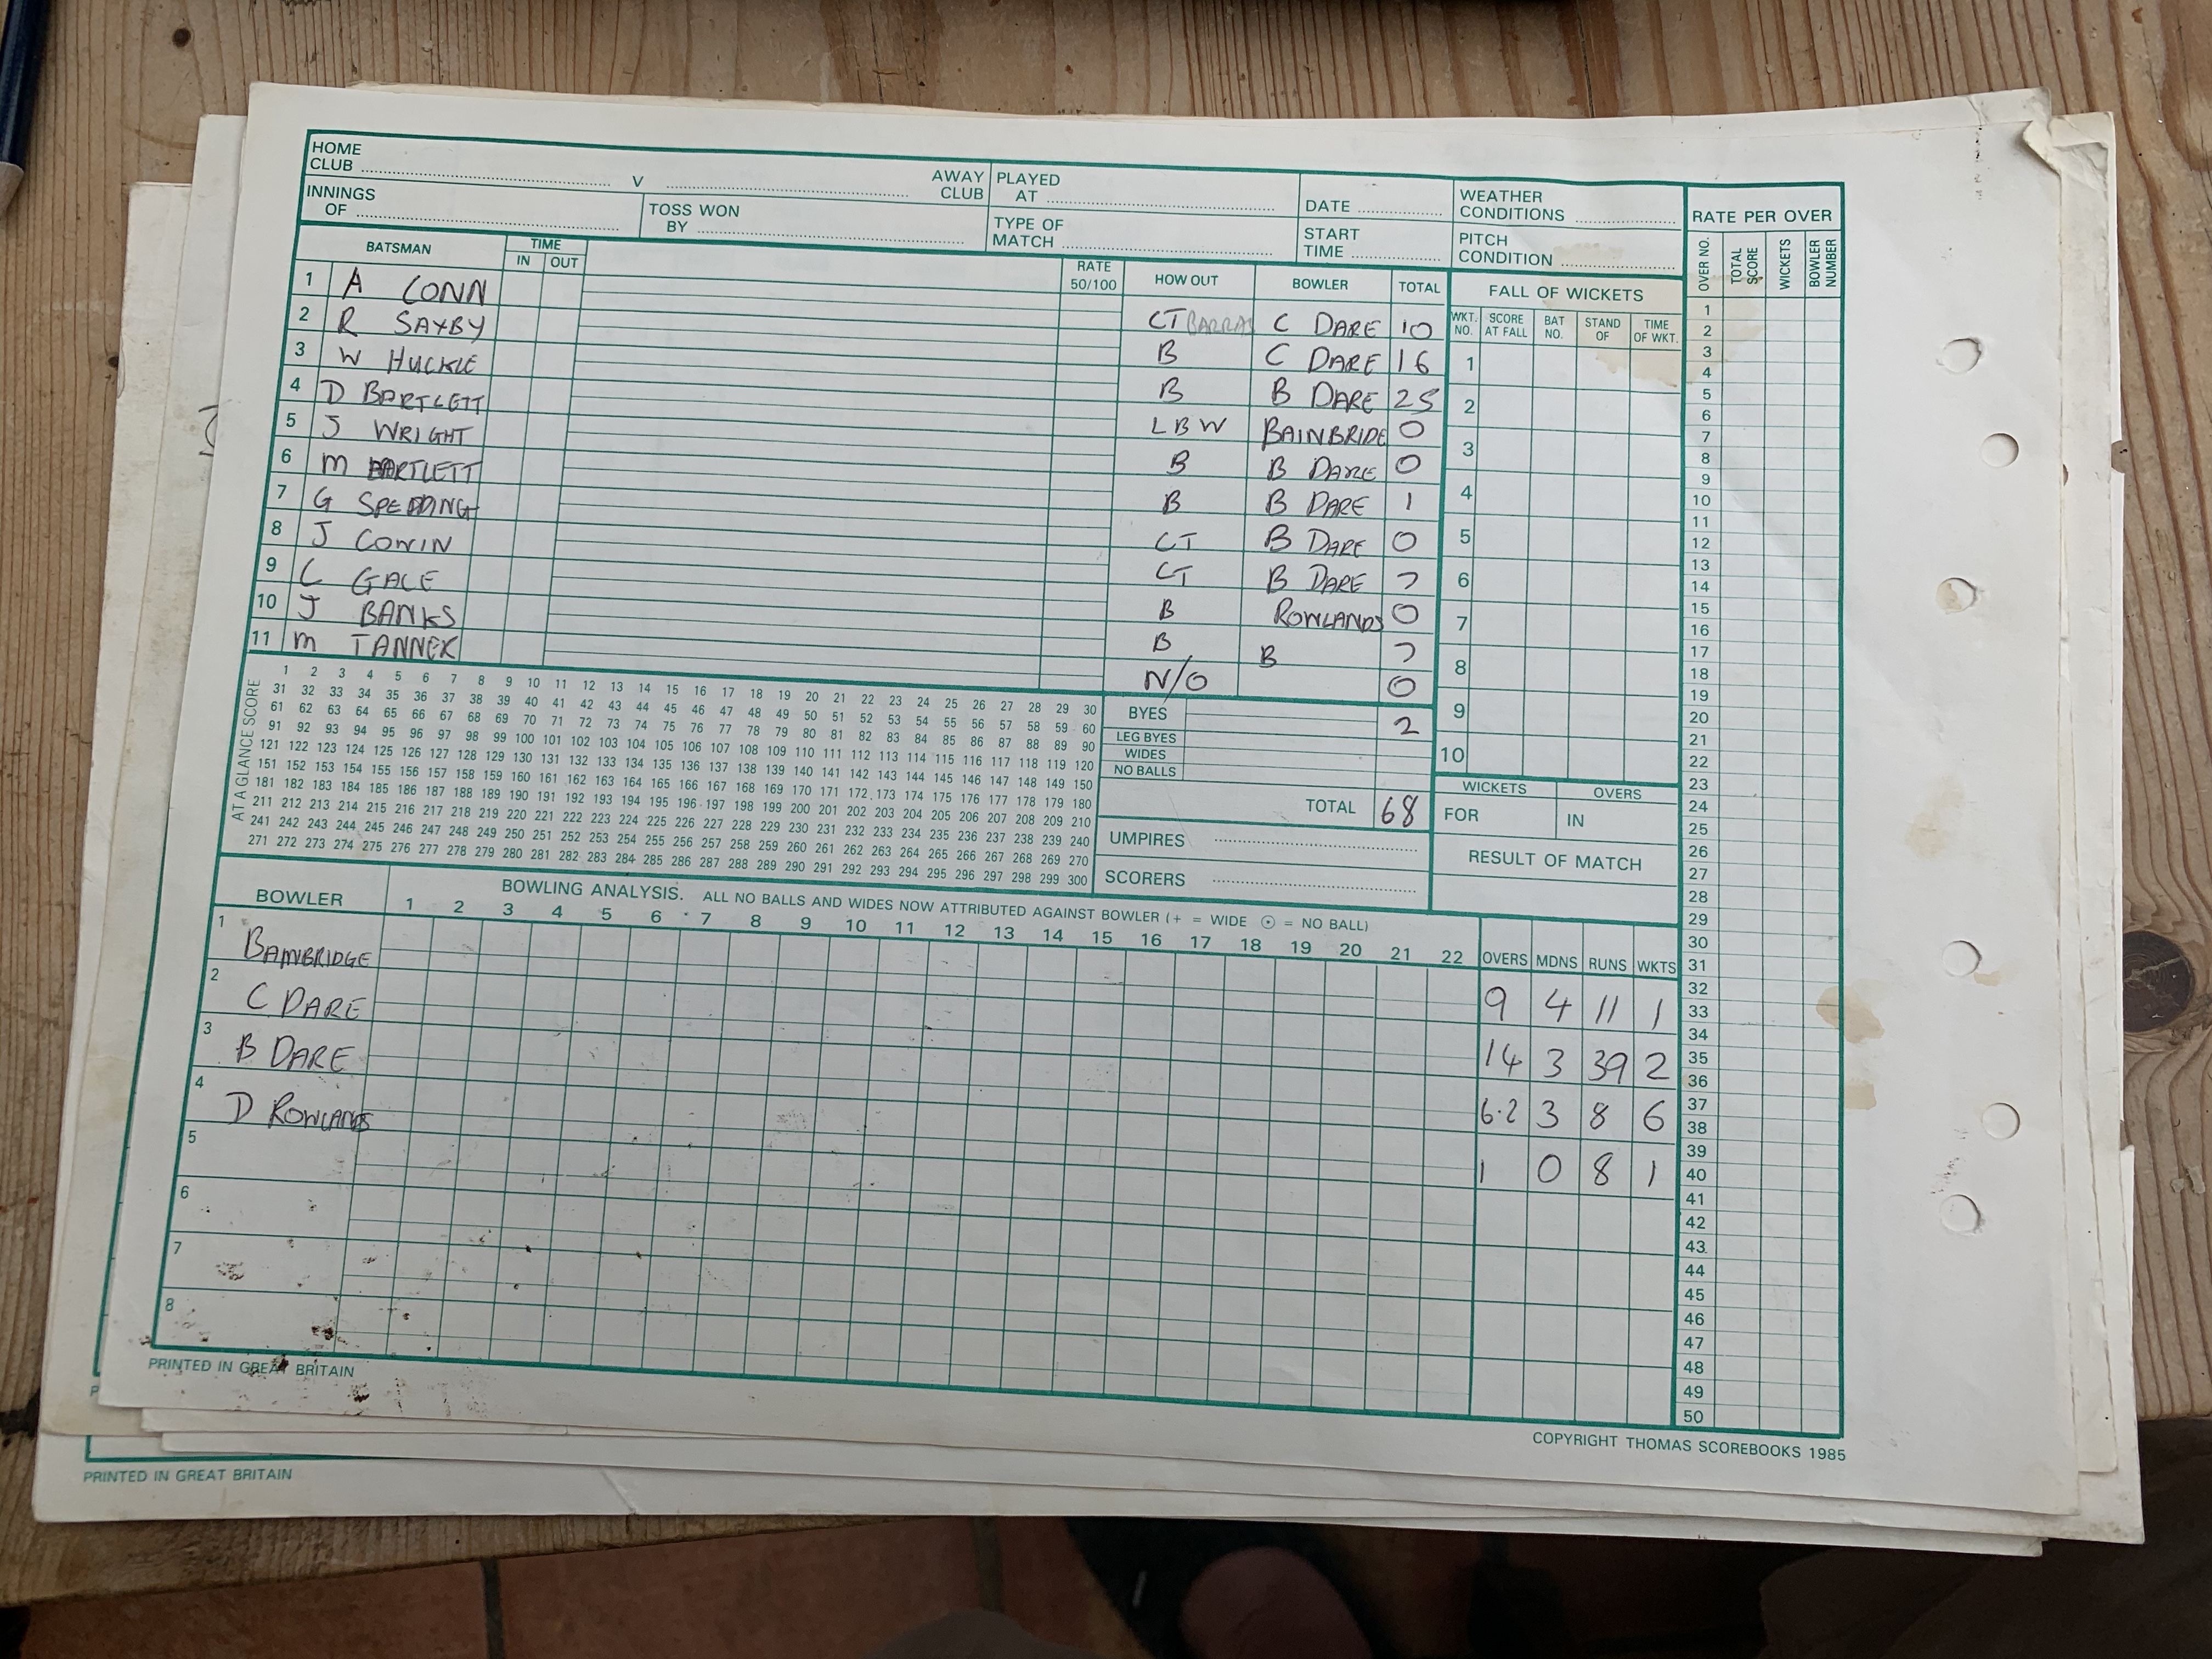 HOME CLUB V AWAY CLUB PLAYED AT DATE WEATHER CONDITIONS RATE PER OVER
INNINGS OF TOSS WON BY TYPE OF MATCH START TIME PITCH CONDITION
BATSMAN TIME IN OUT RATE 50/100 HOW OUT BOWLER TOTAL FALL OF WICKETS
WKT. NO. SCORE AT FALL BAT NO. STAND OF TIME OF WKT.
OVER NO. TOTAL SCORE WICKETS BOWLER NUMBER
1 A CONN CT BARRAS C DARE 10
2 R SAXBY B C DARE 16
3 W HUCKLE B B DARE 25
4 D BARTLETT LBW BAINBRIDE 0
5 J WRIGHT B B DARE 0
6 M BARTLETT B B DARE 1
7 G SPEDDING CT B DARE 0
8 J COWIN CT B DARE 7
9 C GALE B ROWLANDS 0
10 J BANKS B B 7
11 M TANNER N/O 0
1
2
3
4
5
6
7
8
9
10
AT A GLANCE SCORE
1 2 3 4 5 6 7 8 9 10 11 12 13 14 15 16 17 18 19 20 21 22 23 24 25 26 27 28 29 30
31 32 33 34 35 36 37 38 39 40 41 42 43 44 45 46 47 48 49 50 51 52 53 54 55 56 57 58 59 60
61 62 63 64 65 66 67 68 69 70 71 72 73 74 75 76 77 78 79 80 81 82 83 84 85 86 87 88 89 90
91 92 93 94 95 96 97 98 99 100 101 102 103 104 105 106 107 108 109 110 111 112 113 114 115 116 117 118 119 120
121 122 123 124 125 126 127 128 129 130 131 132 133 134 135 136 137 138 139 140 141 142 143 144 145 146 147 148 149 150
151 152 153 154 155 156 157 158 159 160 161 162 163 164 165 166 167 168 169 170 171 172 173 174 175 176 177 178 179 180
181 182 183 184 185 186 187 188 189 190 191 192 193 194 195 196 197 198 199 200 201 202 203 204 205 206 207 208 209 210
211 212 213 214 215 216 217 218 219 220 221 222 223 224 225 226 227 228 229 230 231 232 233 234 235 236 237 238 239 240
241 242 243 244 245 246 247 248 249 250 251 252 253 254 255 256 257 258 259 260 261 262 263 264 265 266 267 268 269 270
271 272 273 274 275 276 277 278 279 280 281 282 283 284 285 286 287 288 289 290 291 292 293 294 295 296 297 298 299 300
BYES 2
LEG BYES
WIDES
NO BALLS
TOTAL 68
UMPIRES
SCORERS
WICKETS OVERS
FOR IN
RESULT OF MATCH
BOWLER BOWLING ANALYSIS. ALL NO BALLS AND WIDES NOW ATTRIBUTED AGAINST BOWLER (+ = WIDE ⊙ = NO BALL)
1 2 3 4 5 6 7 8 9 10 11 12 13 14 15 16 17 18 19 20 21 22 OVERS MDNS RUNS WKTS
1 BAINBRIDGE 9 4 11 1
2 C DARE 14 3 39 2
3 B DARE 6.2 3 8 6
4 D ROWLANDS 1 0 8 1
5
6
7
8
1
2
3
4
5
6
7
8
9
10
11
12
13
14
15
16
17
18
19
20
21
22
23
24
25
26
27
28
29
30
31
32
33
34
35
36
37
38
39
40
41
42
43
44
45
46
47
48
49
50
PRINTED IN GREAT BRITAIN
COPYRIGHT THOMAS SCOREBOOKS 1985
P
PRINTED IN GREAT BRITAIN